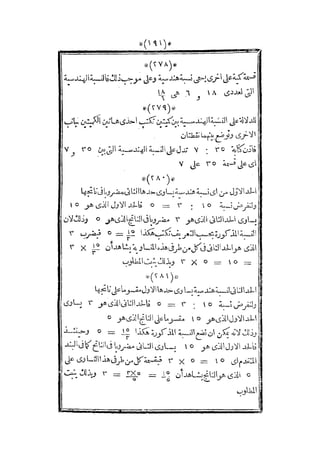 *(١٩١)*
*(٢٧٨)*
قسمة كمية على اخرى يسمى نسبة هندسية وعلى موجب ذلك فالنسبة الهندسية
التى لعددى ١٨ و ٦ هى ١٨/٦
*(٢٧٩)*
للدلالة على النسبة الهندسية بين كميتين تكتب احدى هاتين الكميتين بجانب
الاخرى وتوضع بينهما نقطتان
فاذن كتابة ٣٥ : ٧ تدل على النسبة الهندسية التى بين ٣٥ و ٧
اى على قسمة ٣٥ على ٧
*(٢٨٠)*
الحد الاول من اى نسبة هندسية يساوى حدها الثانى مضروبا فى ناتجها
ولنفرض نسبة ١٥ : ٣ = ٥ فالحد الاول الذى هو ١٥
يساوى الحد الثانى الذى هو ٣ مضروبا فى الناتج الذى هو ٥ وذلك لان
النسبة المذكورة بحسب التعريف تكتب هكذا ١٥/٣ = ٥ فبضرب ٣
الذى هو الحد الثانى فى كل من طرفى هذه المتساوية يشاهد أن ١٥/٣ × ٣
= ١٥ = ٥ × ٣ وبذلك يثبت المطلوب
*(٢٨١)*
الحد الثانى لنسبة هندسية يساوى حدها الاول مقسوما على ناتجها
ولنفرض نسبة ١٥ : ٣ = ٥ فالحد الثانى الذى هو ٣ يساوى
الحد الاول الذى هو ١٥ مقسوما على الناتج الذى هو ٥
وذلك لانه يمكن ان تضع النسبة المذكورة هكذا ١٥/٣ = ٥ وحينئذ
فالحد الاول الذى هو ١٥ يساوى الثانى مضروبا فى الناتج كما فى البند
المتقدم اى ١٥ = ٥ × ٣ فبقسمة كل من طرفى هذا التساوى على
٥ الذى هو الناتج يشاهد أن ١٥/٥ = ٣×٥/٥ = ٣ وبذلك يثبت
المطلوب